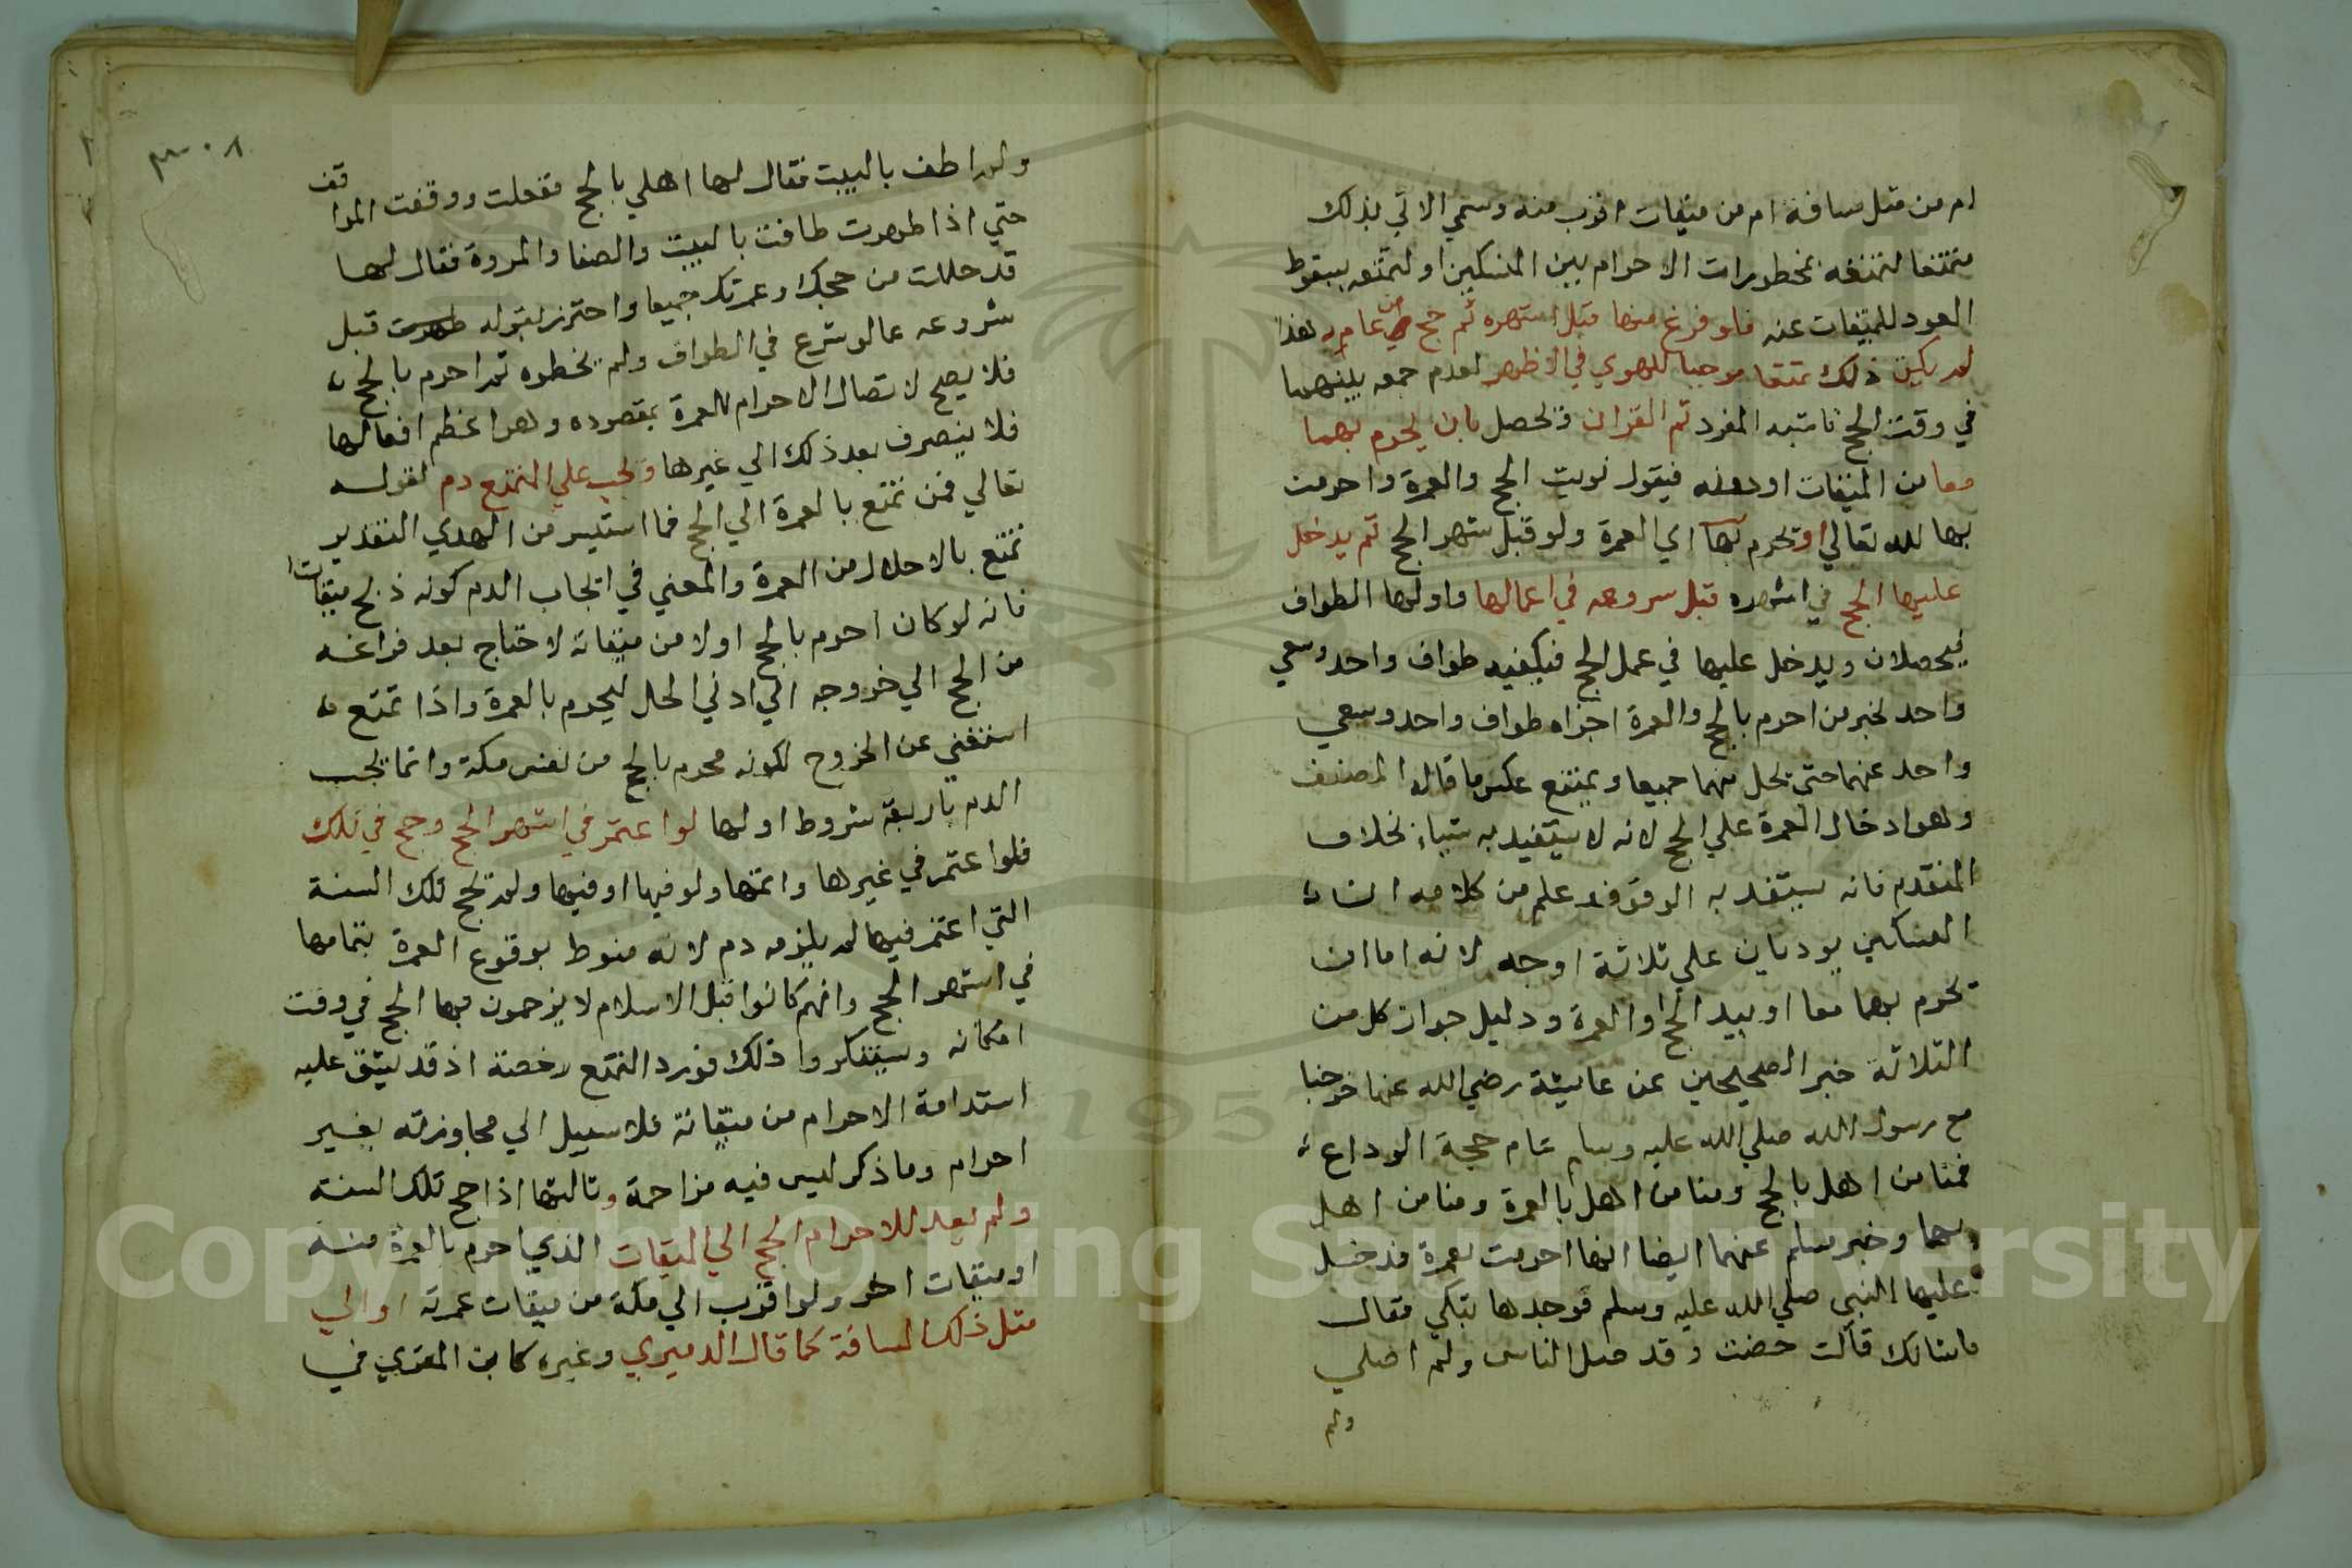 ام من مثل مسافة ام من ميقات اقرب منه وسمي الاتي بذلك
متمتعا لتمتعه بمحظورات الاحرام بين النسكين او لتمتعه بسقوط
العود للميقات عنه فلو فرغ منها قبل اشهره ثم حج من عامه هذا
لم يكن ذلك تمتعا موجبا للهدي في الاظهر لعدم جمعه بينهما
في وقت الحج فاشبه المفرد ثم القران ويحصل بان يحرم بهما
معا من الميقات او دونه فيقول نويت الحج والعمرة واحرمت
بها لله تعالي او يحرم بها اي العمرة ولو قبل شهر الحج ثم يدخل
عليها الحج في اشهره قبل سروعه في اعمالها واولها الطواف
فيحصلان ويدخل عليها في عمل الحج فيكفيه طواف واحد وسعي
واحد لخبر من احرم بالحج والعمرة اجزاه طواف واحد وسعي
واحد عنهما حتي يحل منهما جميعا ويمتنع عكس ما قاله المصنف
وهو ادخال العمرة علي الحج لانه لا يستفيد به شيا بخلاف
المتقدم فانه يستفد به الوقوف علم من كلامه ان
النسكين يوديان علي ثلاثة اوجه لانه اما ان
يحرم بهما معا او يبد الحج او العمرة ودليل جواز كل من
الثلاثة خبر الصحيحين عن عايشة رضي الله عنها خرجنا
مع رسول الله صلي الله عليه وسلم عام حجة الوداع
فمنا من اهل بالحج ومنا من اهل بالعمرة ومنا من اهل
بهما وخبر مسلم عنهما ايضا انها احرمت بعمرة فدخل
عليها النبي صلي الله عليه وسلم فوجدها تبكي فقال
ماشانك قالت حضت وقد حل الناس ولم احلي
ولم
٣٠٨
ولم اطف بالبيت فقال لها اهلي بالحج ففعلت ووقفت المواقف
حتي اذا طهرت طافت بالبيت والصفا والمروة فقال لها
قد حللت من حجك وعمرتك جميعا واحترز بقوله قبل
شروعه عما لو شرع في الطواف ولم يخطوه ثم احرم بالحج
فلا يصح لاتصال الاحرام للعمرة بمقصوده وهو اعظم افعالها
فلا ينصرف بعد ذلك الي غيرها ويجب علي المتمتع دم لقوله
تعالي فمن تمتع بالعمرة الي الحج فما استيسر من الهدي التقدير
تمتع بالاحلال من العمرة والمعني في ايجاب الدم كونه ذبح ميقاتا
فانه لو كان احرم بالحج اولا من ميقاته لاحتاج بعد فراغه
من الحج الي خروجه الي ادني الحل ليحرم بالعمرة واذا تمتع
استغني عن الخروج لكونه محرم بالحج من نفس مكة وانما يجب
الدم باربعة شروط اولها لو اعتمر في اشهر الحج وحج في تلك
فلو اعتمر في غيرها واتمها ولو فيها او فيها ولم يحج تلك السنة
التي اعتمر فيها لم يلزمه دم لانه منوط بوقوع العمرة بتمامها
في اشهر الحج وانهم كانوا قبل الاسلام لا يزحمون بها الحج في وقت
امكانه ويستنكروا ذلك فورد التمتع رخصة اذ قد يشق عليه
استدامة الاحرام من ميقاته فلا سبيل الي مجاوزته بغير
احرام وما ذكر ليس فيه مزاحمة وثالثها اذا حج تلك السنة
ولم يعد للاحرام الحج الي الميقات الذي احرم بالعمرة منه
او ميقات اخر ولو اقرب الي مكة من ميقات عمرته او الي
مثل ذلك المسافة كما قال الدميري وغيره كابن المقري في